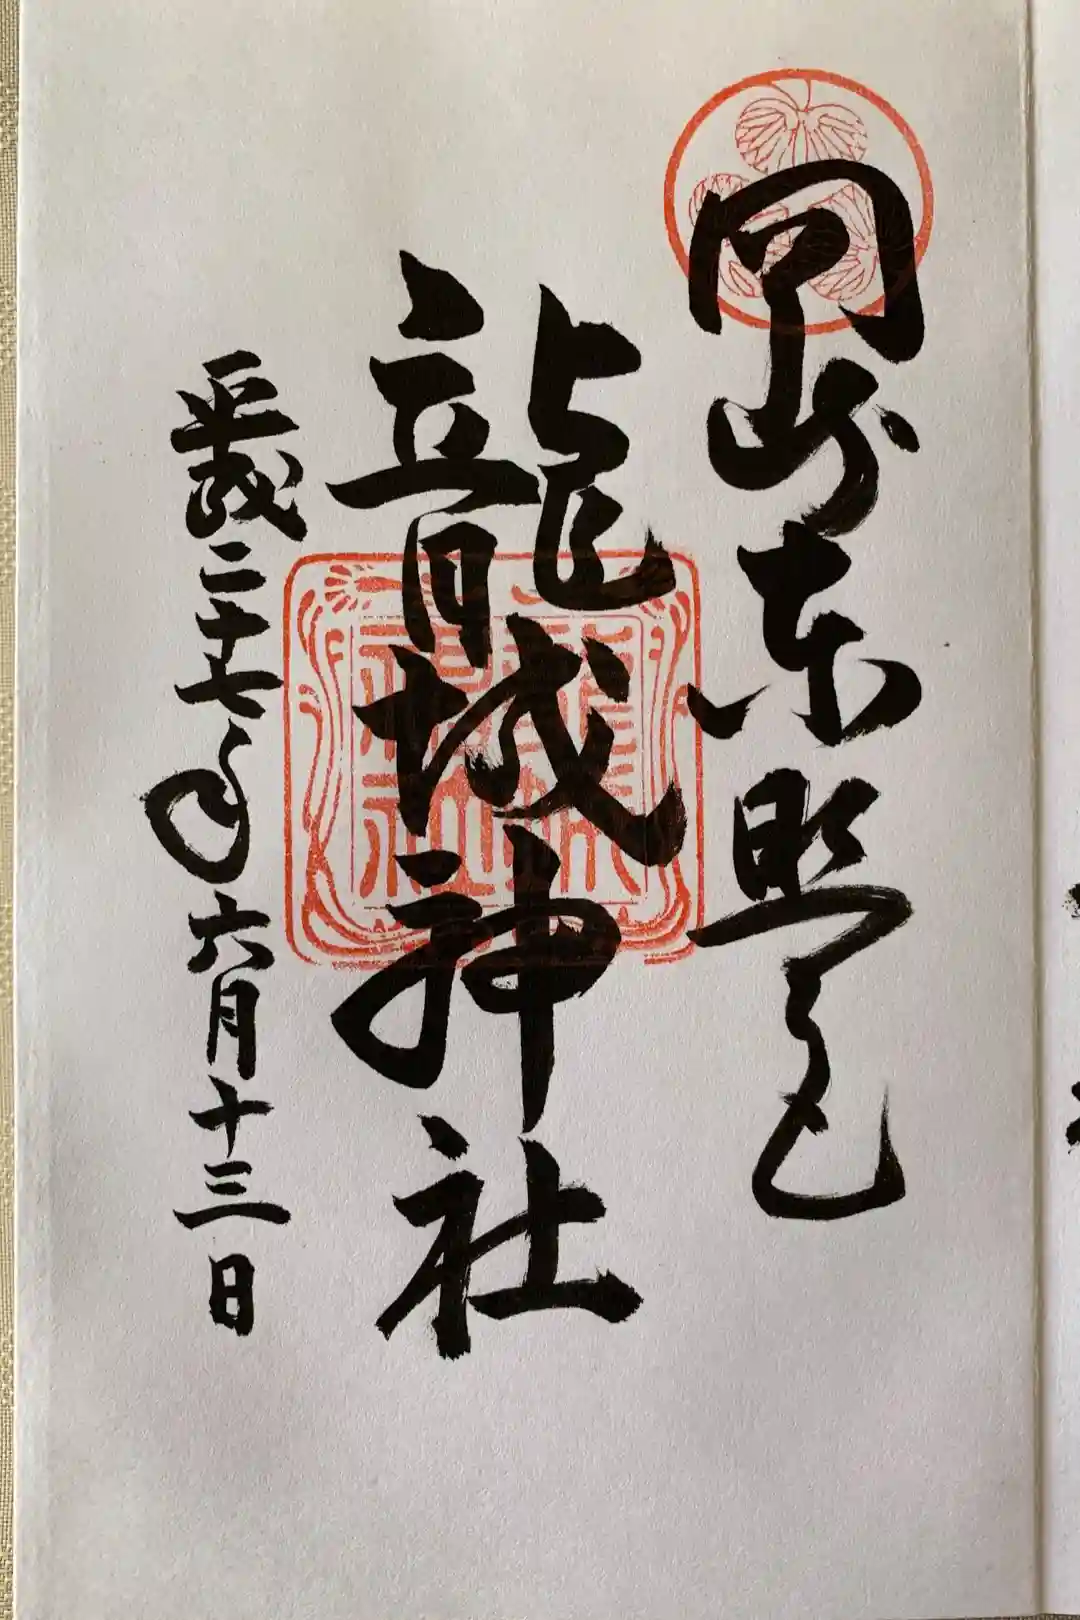 岡崎東照宮
龍城神社
平成二十七年六月十三日